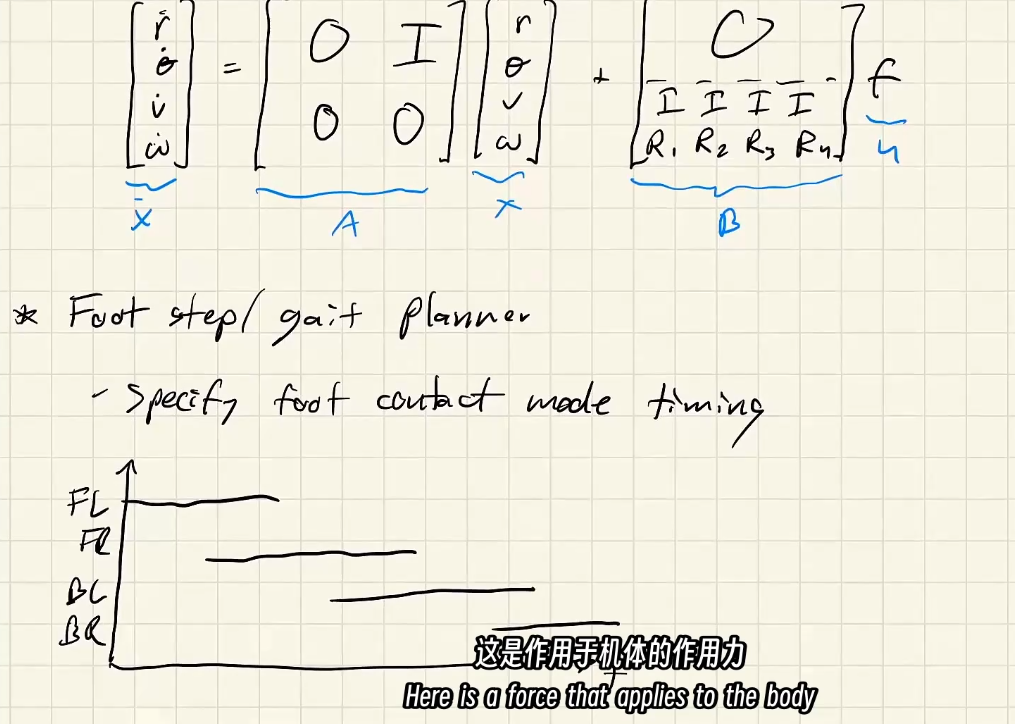 [ṙ θ̇ v̇ ω̇] = [O I; O O] [r θ v ω] + [O; I I I I; R₁ R₂ R₃ R₄] f
ẋ A x B u
* Foot step/ gait planner
- specify foot contact mode timing
FL
FR
BL
BR
这是作用于机体的作用力
Here is a force that applies to the body